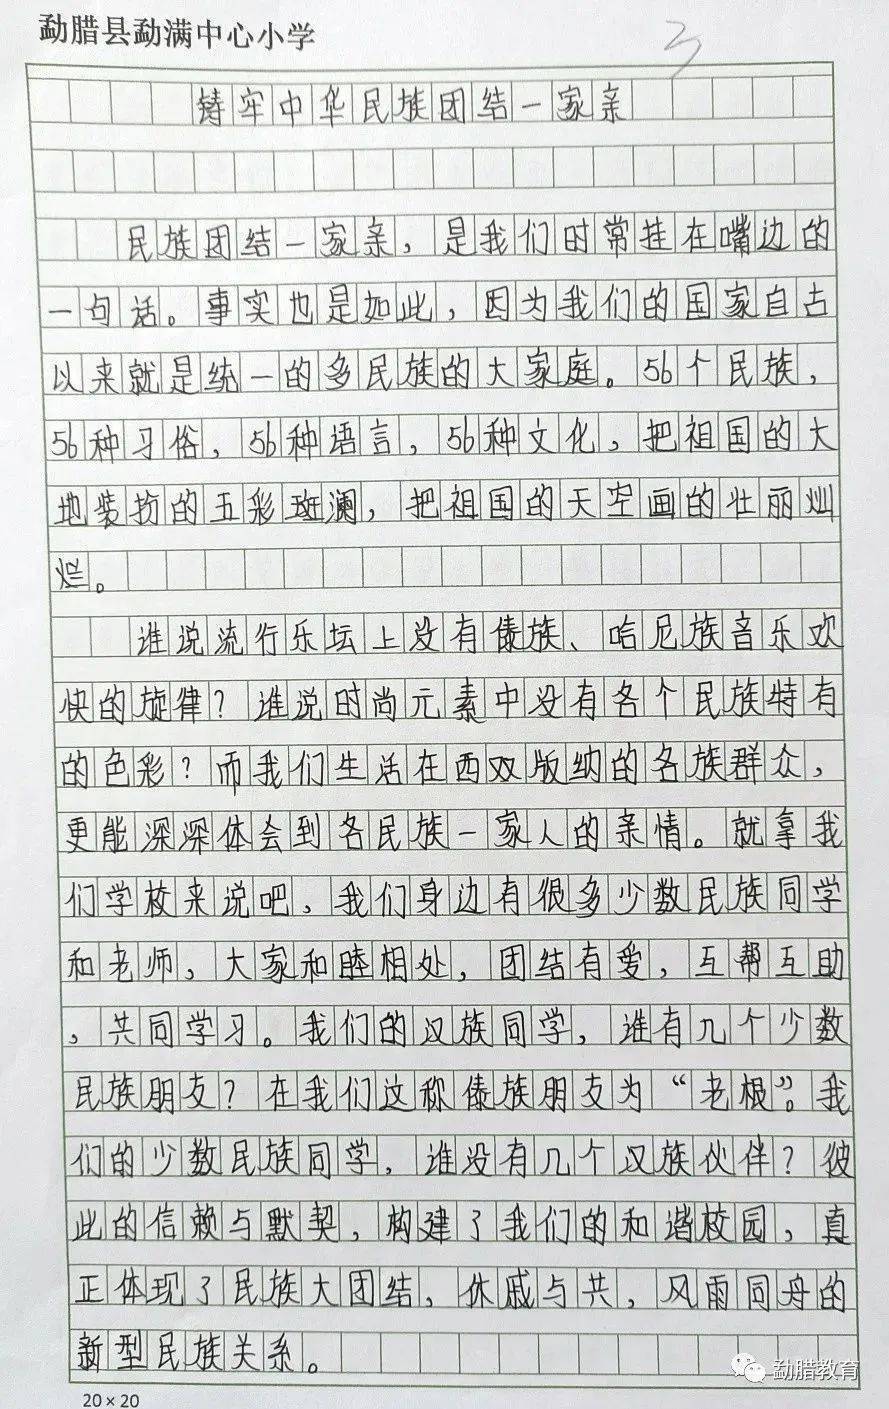 勐腊县勐满中心小学
3
铸牢中华民族团结一家亲
民族团结一家亲，是我们时常挂在嘴边的
一句话。事实也是如此，因为我们的国家自古
以来就是统一的多民族的大家庭。56个民族，
56种习俗，56种语言，56种文化，把祖国的大
地装扮的五彩斑澜，把祖国的天空画的壮丽灿
烂。
谁说流行乐坛上没有傣族、哈尼族音乐欢
快的旋律？谁说时尚元素中没有各个民族特有
的色彩？而我们生活在西双版纳的各族群众，
更能深深体会到各民族一家人的亲情。就拿我
们学校来说吧，我们身边有很多少数民族同学
和老师，大家和睦相处，团结有爱，互帮互助
，共同学习。我们的汉族同学，谁有几个少数
民族朋友？在我们这称傣族朋友为“老根”。我
们的少数民族同学，谁没有几个汉族伙伴？彼
此的信赖与默契，构建了我们的和谐校园，真
正体现了民族大团结，休戚与共，风雨同舟的
新型民族关系。
勐腊教育
20×20